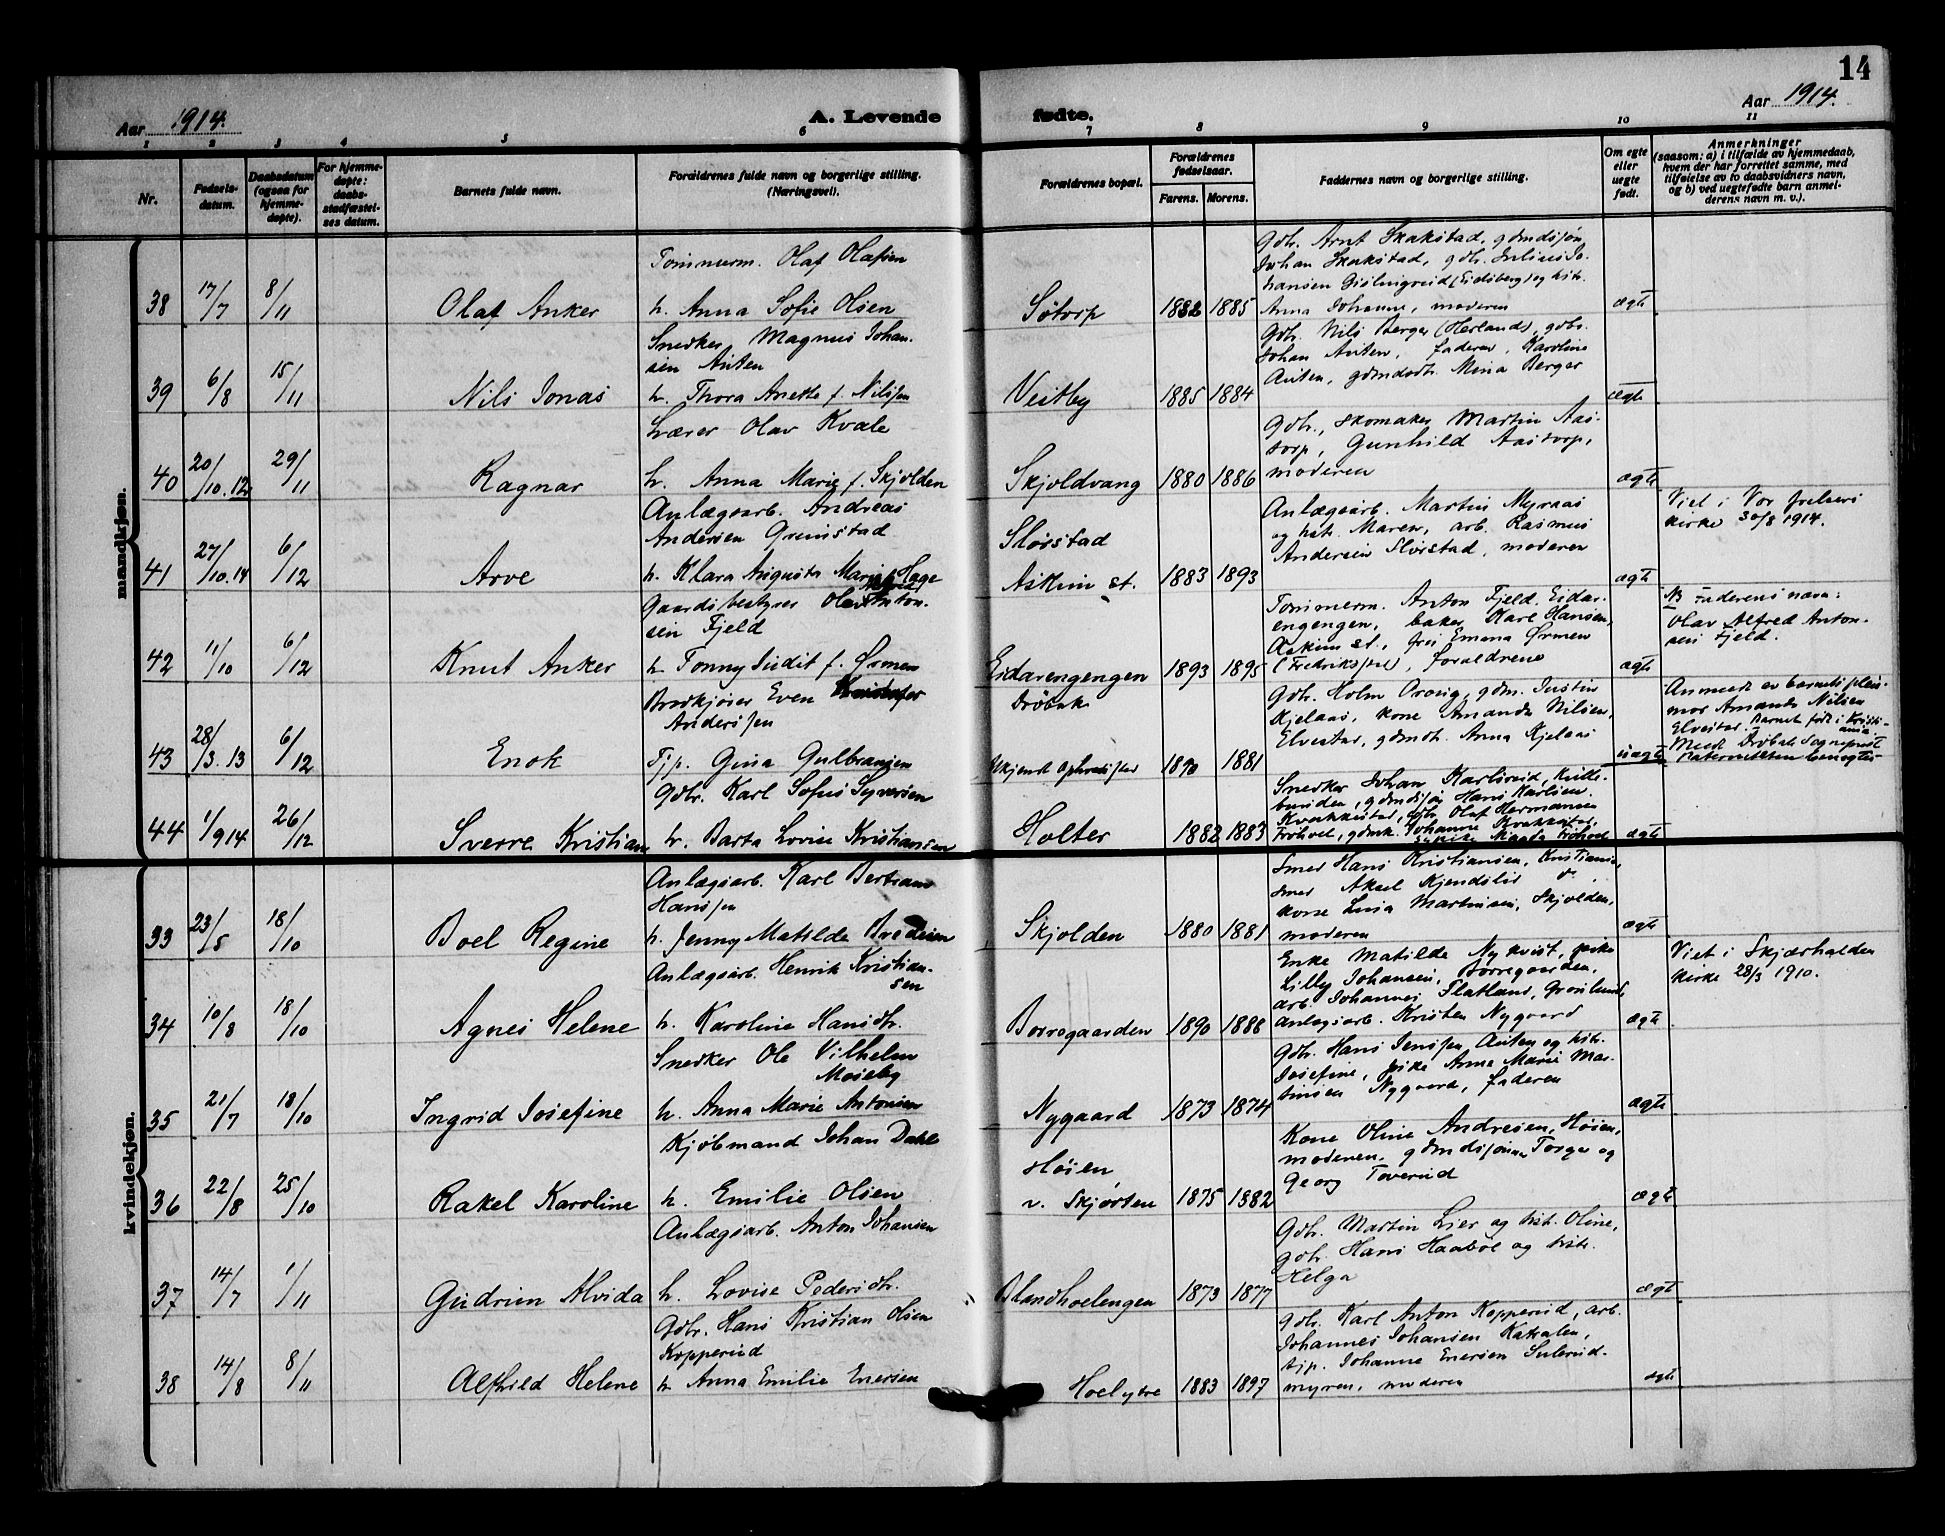 14
Aar 1914. A. Levende
fødte. Aar 1914.
1 2 3 4 5 6 7 8 9 10 11
Nr.
Fødsels-
datum.
Daabsdatum
(ogsaa for
hjemme-
døpte).
For hjemme-
døpte:
daabs-
stadfæstel-
ses datum.
Barnets fulde navn.
Forældrenes fulde navn og borgerlige stilling.
(Næringsvei).
Forældrenes bopæl.
Forældrenes
fødselsaar.
Farens. Morens.
Faddernes navn og borgerlige stilling.
Om egte
eller
uegte
født.
Anmerkninger
(saasom: a) i tilfælde av hjemmedaab,
hvem der har forrettet samme, med
tilføielse av to daabsvidners navn,
og b) ved uegtefødte barn anmel-
derens navn m. v.).
mandkjøn.
38 17/7 8/11 Olaf Anker
Tømmerm. Olaf Olafsen
h. Anna Sofie Olsen
Søtorp 1882 1885
Gbr. Arnt Skakstad, gdmdsøn
Johan Skakstad, gbr. Julius Jo-
hansen (Eidsberg) og hstr.
Anna Johanne, moderen
ægte
39 6/8 15/11 Nils Jonas
Snedker Magnus Johan-
sen Auten
h. Thora Anette f. Nilssen
Vestby 1885 1884
Gbr. Nils Berger (Herland), gdbr.
Johan Auten, faderen, Karoline
Auten, gdmdodtr. Mina Berger
ægte
40 20/10.12 29/11 Ragnar
Lærer Olav Kvale
h. Anna Marie f. Skjolden
Skjoldvang 1880 1886
Gbr., skomaker Martin Aas-
torp, Gunhild Aastorp,
moderen
ægte
41 27/10.14 6/12 Arve
Anlægsarb. Andreas
Andersen Grimstad
h. Klara Augusta Marie f. Hage
Slorstad
Askim st. 1883 1893
Anlægsarb. Martin Myraas
og hst. Maren, arb. Rasmus
Andersen Slorstad, moderen
ægte
Viet i Vor frelsers
kirke 30/8 1914.
42 11/10 6/12 Knut Anker
Gaardsbestyrer Olav Anton-
sen Fjeld
h. Tonny Judit f. Ørmen
Eidarengengen 1893 1895
Tømmerm. Anton Fjeld, Eidar-
engengen, baker Karl Hansen,
Askim st., frk Emma Ørmen
(Fredrikshald), forældrene
ægte
NB Faderens navn:
Olav Alfred Anton-
sen Fjeld.
43 28/3.13 6/12 Enok
Brødkjører Even Kristofer
Andersen
Tjp. Gina Gulbransen
Drøbak
Ukjendt opholdssted 1890 1881
Gbr. Holm Oraug, gdm. Justin
Kjelaas, kone Amanda Nilsen,
Elvestad, gdmdt. Anna Kjelaas
uægte
Anmeldt av barnets pleie-
mor Amanda Nilsen
Elvestad. Barnet født i Kristi-
ania.
Meldt Drøbak Sogneprest
Paterniteten benegtes
44 1/9 14 26/12 Sverre Kristian
Gdbr. Karl Sofus Syversen
h. Berta Lovise Kristiansen
Holter 1882 1883
Snedker Johan Karlsrud, Knitte-
bunden, gdmdsøn Hans Karlsen
Kvakkestad, gbr. Olaf Hermansen
Frøhvel, gdmk. Johanne Kvakkestad,
pike Magda Frøhvel
ægte
kvindekjøn.
33 23/5 18/10 Boel Regine
Anlægsarb. Karl Bertram
Hanssen
h. Jenny Matilde Bredesen
Skjolden 1880 1881
Smed Hans Kristiansen, Kristiania,
smed Aksel Kjendslid do.,
kone Lina Martinsen, Skjolden,
moderen
ægte
34 10/8 18/10 Agnes Helene
Anlægsarb. Henrik Kristian-
sen
h. Karoline Hansdtr.
Borregaarden 1890 1886
Enke Matilde Nykvist, pike
Lilly Johansen, Borregaarden,
arb. Johannes Flatland, Grønlund,
anlægsarb. Kristen Nygaard
ægte
Viet i Skjærhalden
kirke 28/3 1910.
35 21/7 18/10 Ingrid Josefine
Snedker Ole Vilhelm
Moseby
h. Anna Marie Antonsen
Nygaard 1873 1874
Gbr. Hans Jenssen, Auten og hstr.
Josefine, pike Anna Marie Mar-
tinsen Nygaard, faderen
ægte
36 22/8 25/10 Rakel Karoline
Kjøbmand Johan Dahl
h. Emilie Olsen
Høien
v. Skjørten 1875 1882
Kone Oline Andresen, Høien,
moderen, gdmdsønner Torger og
Georg Toverud
ægte
37 14/7 1/11 Gudrun Alvida
Anlægsarb. Anton Johansen
h. Lovise Pedersdtr.
Blandhoelengen 1873 1877
Gbr. Martin Lier og hst. Oline,
gbr. Hans Haabøl og hstr.
Helga
ægte
38 14/8 8/11 Alfhild Helene
Gdbr. Hans Kristian Olsen
Kopperud
h. Anna Emilie Enersen
Hoel ytre 1883 1897
Gbr. Karl Anton Kopperud, arb.
Johannes Johansen Katralen,
tjp. Johanne Enersen Sulerud-
myren, moderen
ægte